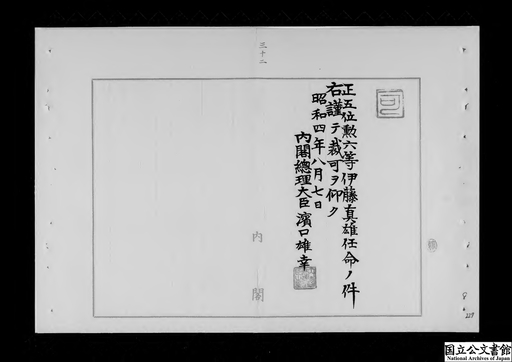 三十二
可
正五位勲六等伊藤真雄任命ノ件
右謹テ裁可ヲ仰ク
昭和四年八月七日
内閣總理大臣濱口雄幸
内閣
国立公文書館
National Archives of Japan